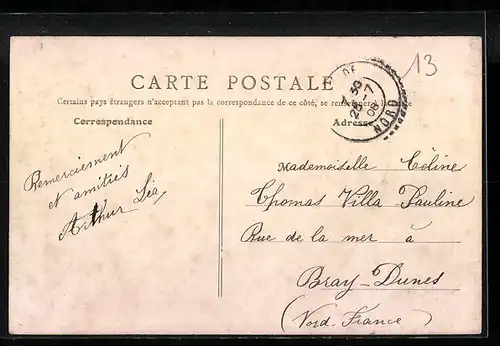 13
CARTE POSTALE
Certains pays étrangers n'acceptant pas la correspondance de ce côté, se renseigner à la Poste
Correspondance
Adresse
DE
25-7
NORD
Remerciement
et amitiés
Arthur Léa
Mademoiselle Céline
Thomas Villa Pauline
Rue de la mer à
Bray-Dunes
(Nord-France)